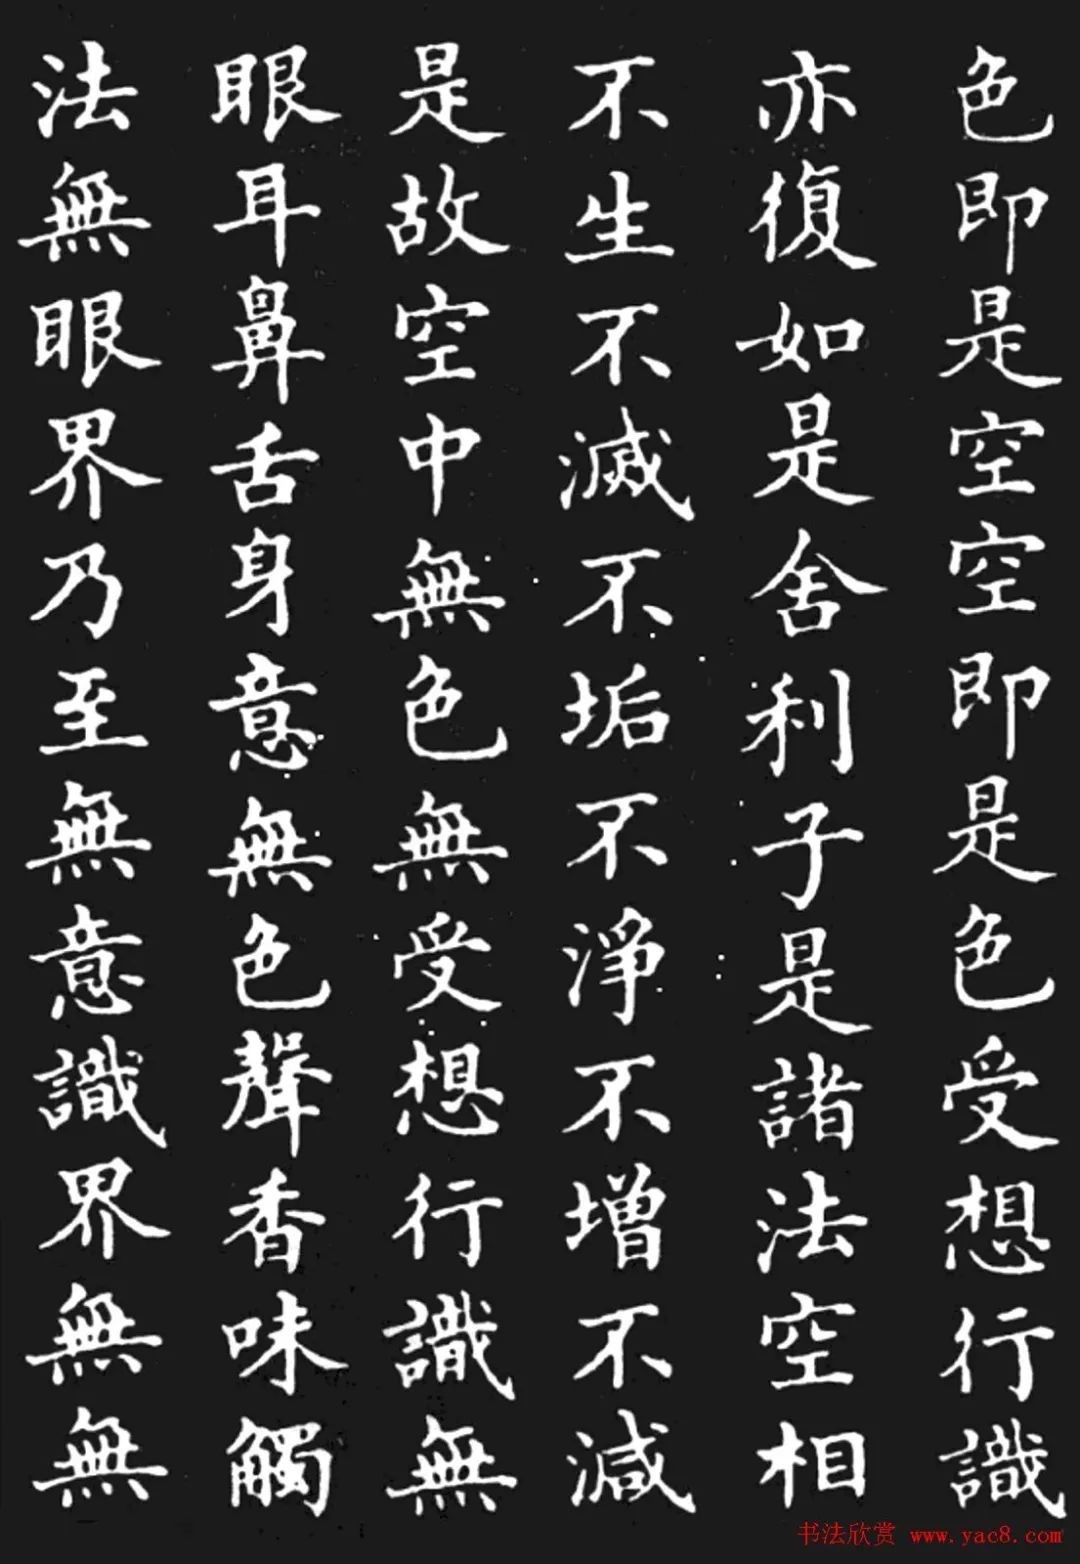 色即是空空即是色受想行識
亦復如是舍利子是諸法空相
不生不滅不垢不淨不增不減
是故空中無色無受想行識無
眼耳鼻舌身意無色聲香味觸
法無眼界乃至無意識界無無
书法欣赏 www.yac8.com